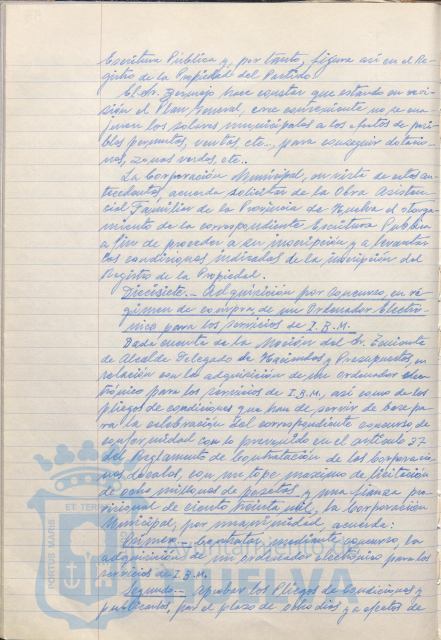 Escritura Pública y, por tanto, figura así en el Re-
gistro de la Propiedad del Partido.
El Sr. Zermejo hace constar que estando en revi-
sión el Plan General, cree conveniente no se ena-
jenen los solares municipales a los efectos de posi-
bles permutas, ventas, etc., para conseguir dotacio-
nes, zonas verdes, etc..
La Corporación Municipal, en vista de estos an-
tecedentes, acuerda solicitar de la Obra Asisten-
cial Familiar de la Provincia de Huelva el otorga-
miento de la correspondiente Escritura Pública
a fin de proceder a su inscripción y a levantar
las condiciones indicadas de la inscripción del
Registro de la Propiedad.
Diecisiete.- Adquisición por Concurso, en ré-
gimen de compra, de un Ordenador Electró-
nico para los servicios de I.B.M.
Dada cuenta de la Moción del Sr. Teniente
de Alcalde Delegado de Hacienda y Presupuestos, en
relación con la adquisición de un ordenador elec-
trónico para los servicios de I.B.M., así como de los
pliegos de condiciones que han de servir de base pa-
ra la celebración del correspondiente concurso de
conformidad con lo prevenido en el artículo 37
del Reglamento de Contratación de las Corporacio-
nes Locales, con un tope máximo de licitación
de ocho millones de pesetas y una fianza pro-
visional de ciento treinta mil, la Corporación
Municipal, por unanimidad, acuerda:
Primero.- Contratar, mediante concurso, la
adquisición de un ordenador electrónico para los
servicios de I.B.M.
Segundo.- Aprobar los Pliegos de Condiciones y
publicarlos, por el plazo de ocho días y a efectos de
ET TERR
PORTUS MARIS
Ayuntamiento
HUELVA